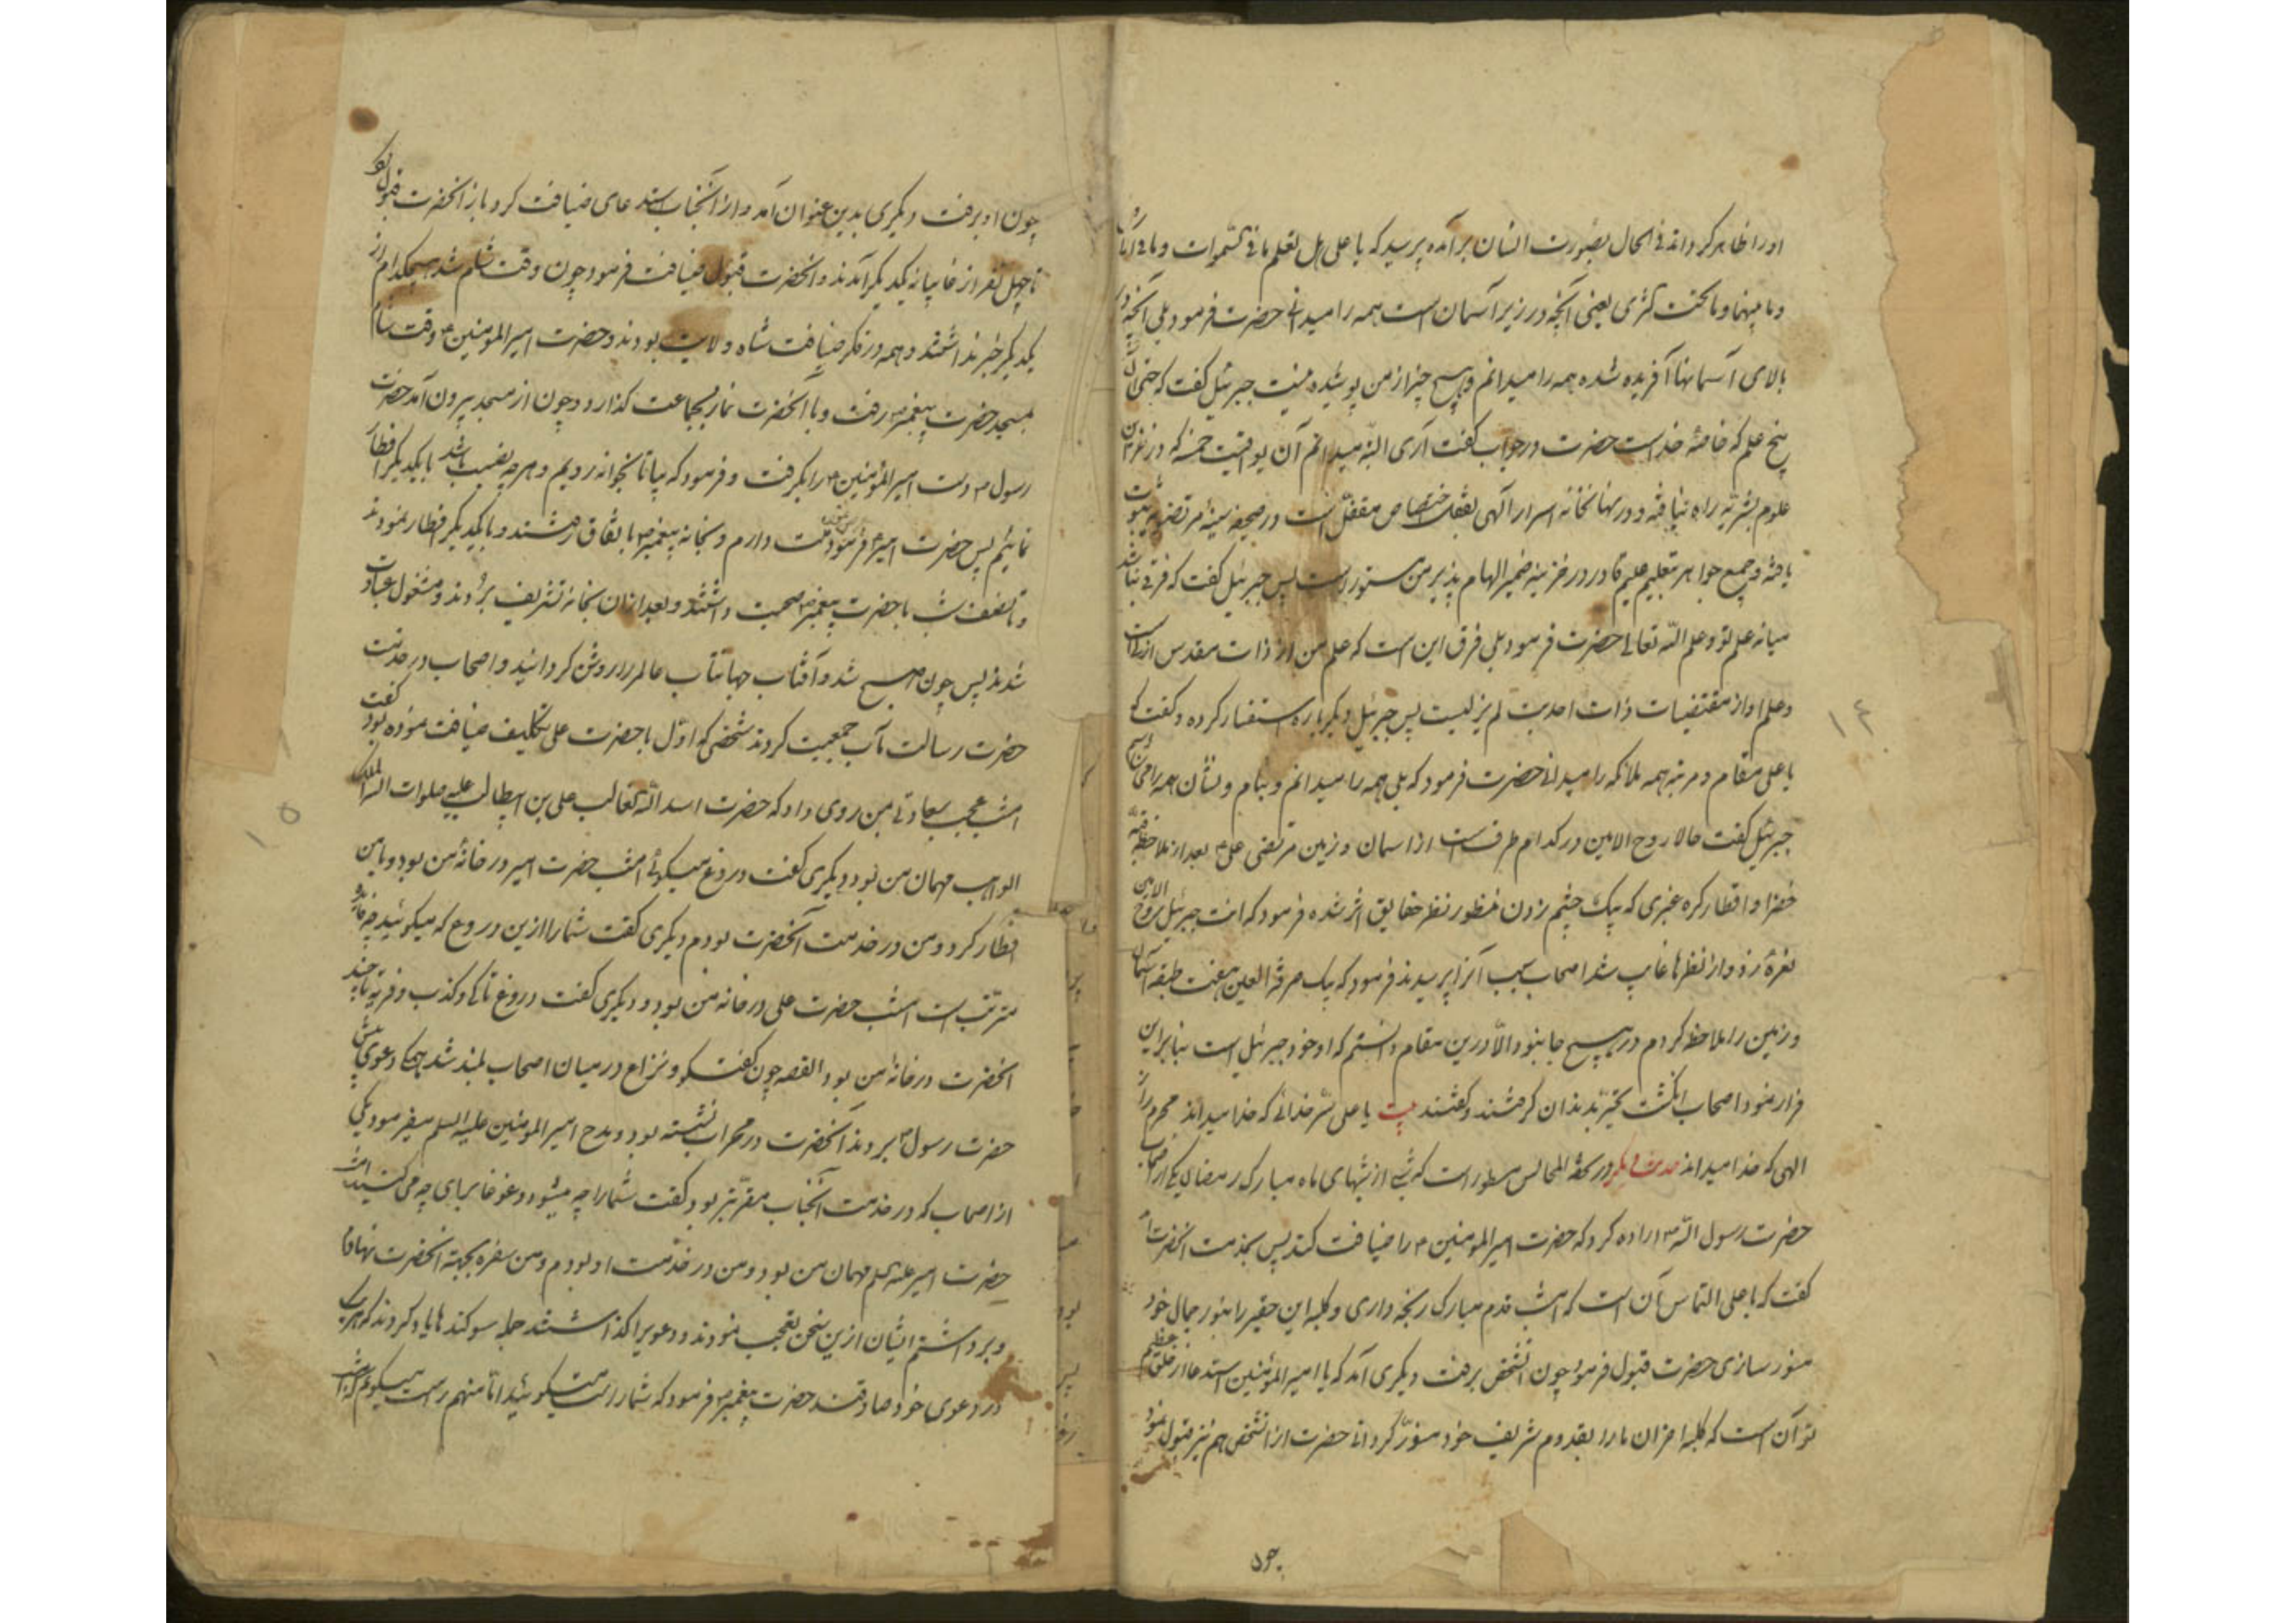 او را ظاهر کرداند فی الحال بصورت انسان برآمده پرسید که یا علی هل تعلم ما فی السموات و ما فی الارض
و ما بینهما و ما تحت الثری یعنی آنچه در زیر آسمان است همه را میدانی حضرت فرمود بلی آنچه در
بالای آسمانها آفریده شده همه را میدانم و هیچ چیز از من پوشیده نیست جبرئیل گفت که حتی آن
پنج علم که خاصهٔ خداست حضرت در جواب گفت آری البته میدانم آن یواقیت خمسه که در نظر
علوم بشریه راه نیافته و در نهانخانه اسرار آلهی بقفل اختصاص مقفل است در صحیفه سینهٔ مرتضی ثبوت
یافته و جمیع جواهر بتعلیم علیم قادر در خزینه ضمیر الهام پذیر من مستور است پس جبرئیل گفت که فرقی نباشد
میانه علم تو و علم الله تعالی حضرت فرمود بلی فرق این است که علم من از ذات مقدس ازلیست
و علم او از مقتضیات ذات احدیت لم یزلیست پس جبرئیل دیگر باره استفسار کرده و گفت که
یا علی مقام و مرتبه همه ملائکه را میدانی حضرت فرمود که بلی همه را میدانم و بنام و نشان همه را می شناسم
جبرئیل گفت حالا روح الامین در کدام طرفست از آسمان و زمین مرتضی علی ع بعد از ملاحظه قبه
خضرا و اقطار کره غبری که بیک چشم زدن منظور نظر حقایق اثر شده فرمود که انت جبرئیل روح الامین
نعره زد و از نظرها غایب شد اصحاب سبب آنرا پرسیدند فرمود که بیک طرفة العین هفت طبقه آسمان
و زمین را ملاحظه کردم در هیچ جا نبود الا درین مقام دانستم که او خود جبرئیل است بنابراین
فرار نمود اصحاب انگشت تحیر بدندان گرفتند و گفتند بیت یا علی سر خدائی که خدا میداند محرم راز
الهی که خدا میداند حدیث دیگر در تحفة المجالس مسطور است که شبی از شبهای ماه مبارک رمضان یکی از اصحاب
حضرت رسول الله ص اراده کرد که حضرت امیر المؤمنین ع را ضیافت کند پس بخدمت آنحضرت آمد
گفت که یا علی التماس آن است که امشب قدم مبارک رنجه داری و کلبه این حقیر را بنور جمال خود
منور سازی حضرت قبول فرمود چون آنشخص برفت دیگری آمد که یا امیر المؤمنین استدعا از خلق عظیم
تو آن است که کلبه احزان ما را بقدوم شریف خود منور گردانی حضرت از آنشخص هم نیز قبول نمود
چون
۱۴
چون او برفت دیگری بدین عنوان آمد و از آنجناب استدعای ضیافت کرد باز آنحضرت قبول نمود
تا چهل نفر از غایبانه یکدیگر آمدند و آنحضرت قبول ضیافت فرمود چون وقت شام شد هیچکدام از
یکدیگر خبر نداشتند و همه در فکر ضیافت شاه ولایت بودند و حضرت امیر المؤمنین ع وقت شام
بمسجد حضرت پیغمبر ص رفت و با آنحضرت نماز بجماعت گذارد و چون از مسجد بیرون آمد حضرت
رسول ص دست امیر المؤمنین ع را بگرفت و فرمود که بیا تا بخوانه رویم و هر چه نصیب باشد با یکدیگر افطار
نمائیم پس حضرت امیر ع فرمود منت دارم و بخانه پیغمبر ص باتفاق رفتند و با یکدیگر افطار نمودند
و تا نصف شب با حضرت پیغمبر ص صحبت داشتند و بعد از آن بخانه تشریف بردند و مشغول عبادت
شدند پس چون صبح شد و آفتاب جهانتاب عالم را روشن گردانید و اصحاب در خدمت
حضرت رسالت مآب جمعیت کردند شخصی که اول با حضرت علی تکلیف ضیافت نموده بود گفت
امشب عجب سعادتی بمن روی داد که حضرت اسد الله الغالب علی بن ابیطالب علیه صلوات الله الملک
الواهب مهمان من بود و دیگری گفت دروغ میگوئی امشب حضرت امیر در خانهٔ من بود و با من
افطار کرد و من در خدمت آنحضرت بودم دیگری گفت شما را ازین دروغ که میگوئید چه فایده
مترتب است امشب حضرت علی در خانه من بود و دیگری گفت دروغ تا کی و کذب و فریه تا چند
آنحضرت در خانهٔ من بود القصه چون گفتگو و نزاع در میان اصحاب بلند شد همگی دعوی پیش
حضرت رسول ص بردند آنحضرت در محراب نشسته بود و مدح امیر المؤمنین علیه السلم میفرمود یکی
از اصحاب که در خدمت آنجناب مقرب‌تر بود گفت شما را چه میشود و غوغا برای چه می کنید امشب
حضرت امیر علیه السلم مهمان من بود و من در خدمت او بودم و من سفره بجهة آنحضرت نهادم
و برداشتم ایشان ازین سخن تعجب نمودند و دعوی را گذاشتند جمله سوگندها یاد کردند که هر یک
در دعوی خود صادقند حضرت پیغمبر ص فرمود که شما راست میگوئید اما من هم راست میگویم که امشب
۱۵